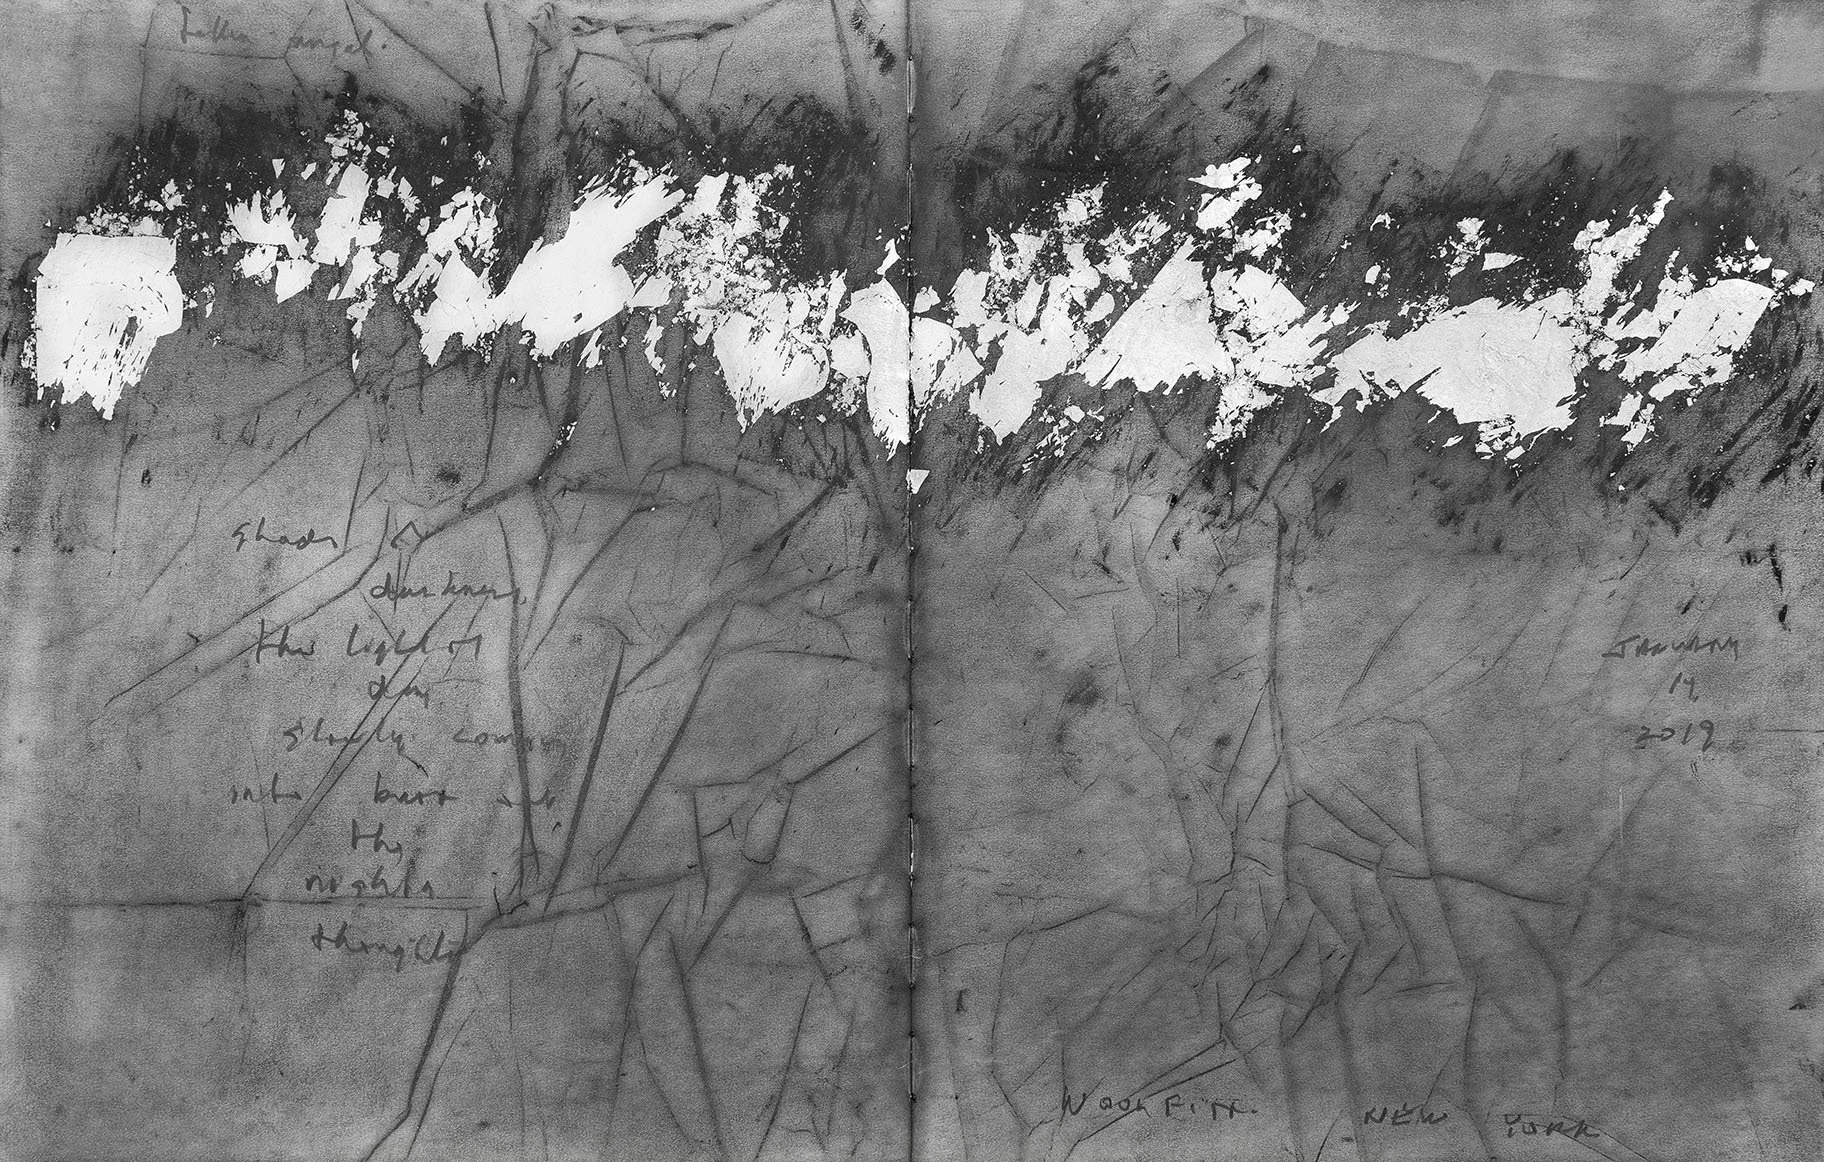 fallen angel.
shades of
darkness,
the light of
day
slowly coming
into burn out
the
nights
thoughts
JANUARY
14,
2019
NEW YORK